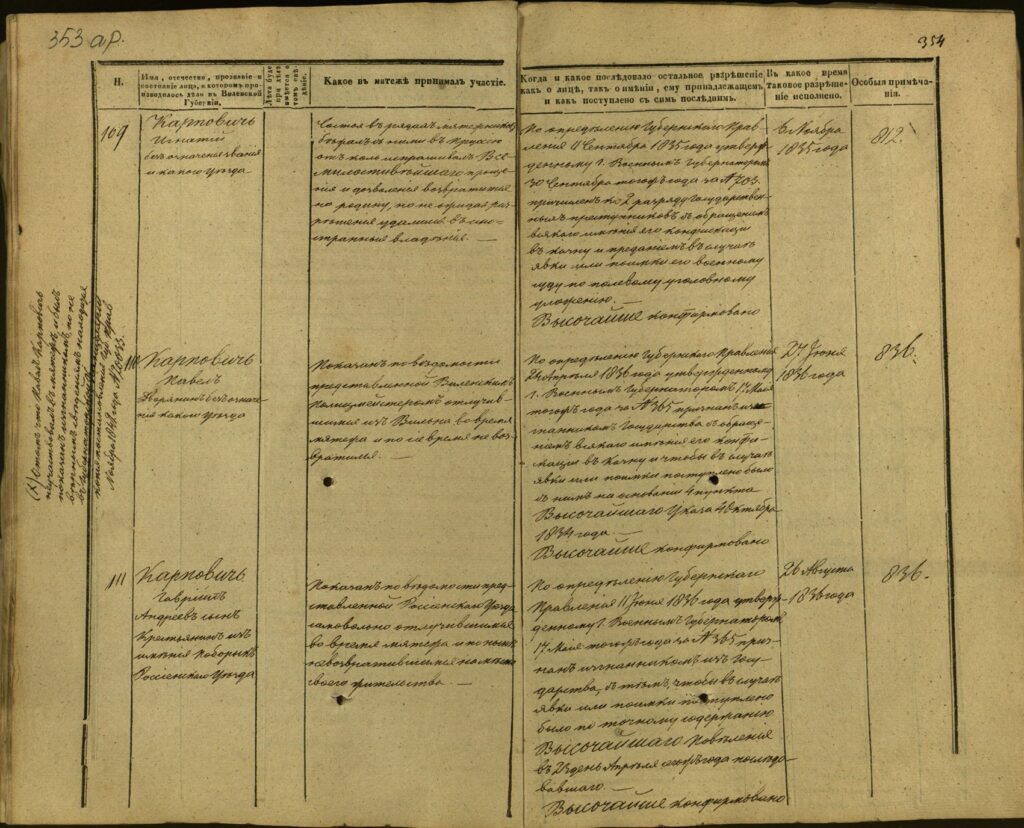 353 ар.
354
Н.
Имя, отечество, прозваніе и
состояніе лица, о которомъ про-
изводилось дѣло въ Виленской
Губерніи.
Какое въ матежѣ принималъ участіе.
Когда и какое послѣдовало остальное разрѣшеніе
какъ о лицѣ, такъ о имѣніи, ему принадлежащемъ
и какъ поступлено съ симъ послѣднимъ.
Въ какое время
таковое разрѣше-
ніе исполнено.
Особыя примѣча-
нія.
109
Карповичъ
Игнатій
безъ означенія званія
и какого уѣзда
Состоя въ рядахъ мятежниковъ
бѣжалъ съ ними въ Пруссію
откол испрашивалъ Все-
милостивѣйшаго проще-
нія и дозволенія возвратиться
на родину, но не ожидая раз-
рѣшенія удалился въ ино-
странныя владѣнія. —
По опредѣленію Губернскаго Прав-
ленія 11 Сентября 1835 года утверж-
денному Г. Военнымъ Губернаторомъ
30 Сентября того жъ года за № 703.
причисленъ ко 2 разряду Государствен-
ныхъ преступниковъ съ обращеніемъ
всякаго имѣнія его конфискаціи
въ казну и преданіемъ въ случаѣ
явки или поимки его военному
суду по полевому уголовному
уложенію. —
Высочайше конфирмовано
6 Ноября
1835 года
812.
110
Карповичъ
Павелъ
Дворянинъ безъ означе-
нія какого уѣзда
Показанъ по вѣдомости
представленной Виленскимъ
Полицмейстеромъ отлучив-
шимся изъ Вильна во время
мятежа и по се время не воз-
вратился. —
По опредѣленію Губернскаго Правленія
24 Апрѣля 1836 года утвержденному
Г. Военнымъ Губернаторомъ 17 Мая
того жъ года за № 365 признанъ из-
гнанникомъ Государства съ обраще-
ніемъ всякаго имѣнія его конфис-
каціи въ Казну и чтобы въ случаѣ
явки или поимки поступлено было
съ нимъ на основаніи 4 пункта
Высочайшаго Указа 4 Октября
1834 года. —
Высочайше конфирмовано
27 Іюня
1836 года
836.
(X) Этотъ что Павелъ Карповичъ
не участвовалъ въ мятежѣ, а былъ
показанъ изгнанникомъ, по не
Ноября 1848 года № 20633.
111
Карповичъ
Гавріилъ
Андреевъ сынъ
Крестьянинъ изъ
имѣнія
Россіенскаго Уѣзда
Показанъ по вѣдомости пред-
ставленной Россіенскаго Уѣзда
самовольно отлучившимся
во время мятежа и по нынѣ
невозвратившимся на мѣсто
своего жительства. —
По опредѣленію Губернскаго
Правленія 11 Іюня 1836 года утверж-
денному Г. Военнымъ Губернаторомъ
17 Мая того жъ года за № 365 приз-
нанъ изгнанникомъ изъ Госу-
дарства, съ тѣмъ, чтобы въ случаѣ
явки или поимки поступлено
было по точному содержанію
Высочайшаго Повелѣнія
въ 23 день Апрѣля сего жъ года послѣдо-
вавшаго.
Высочайше конфирмовано
26 Августа
1836 года
836.